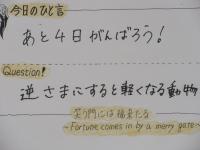 今日のひと言
あと4日がんばろう!
Question!
逆さまにすると軽くなる動物
笑う門には福来たる
~Fortune comes in by a merry gate~